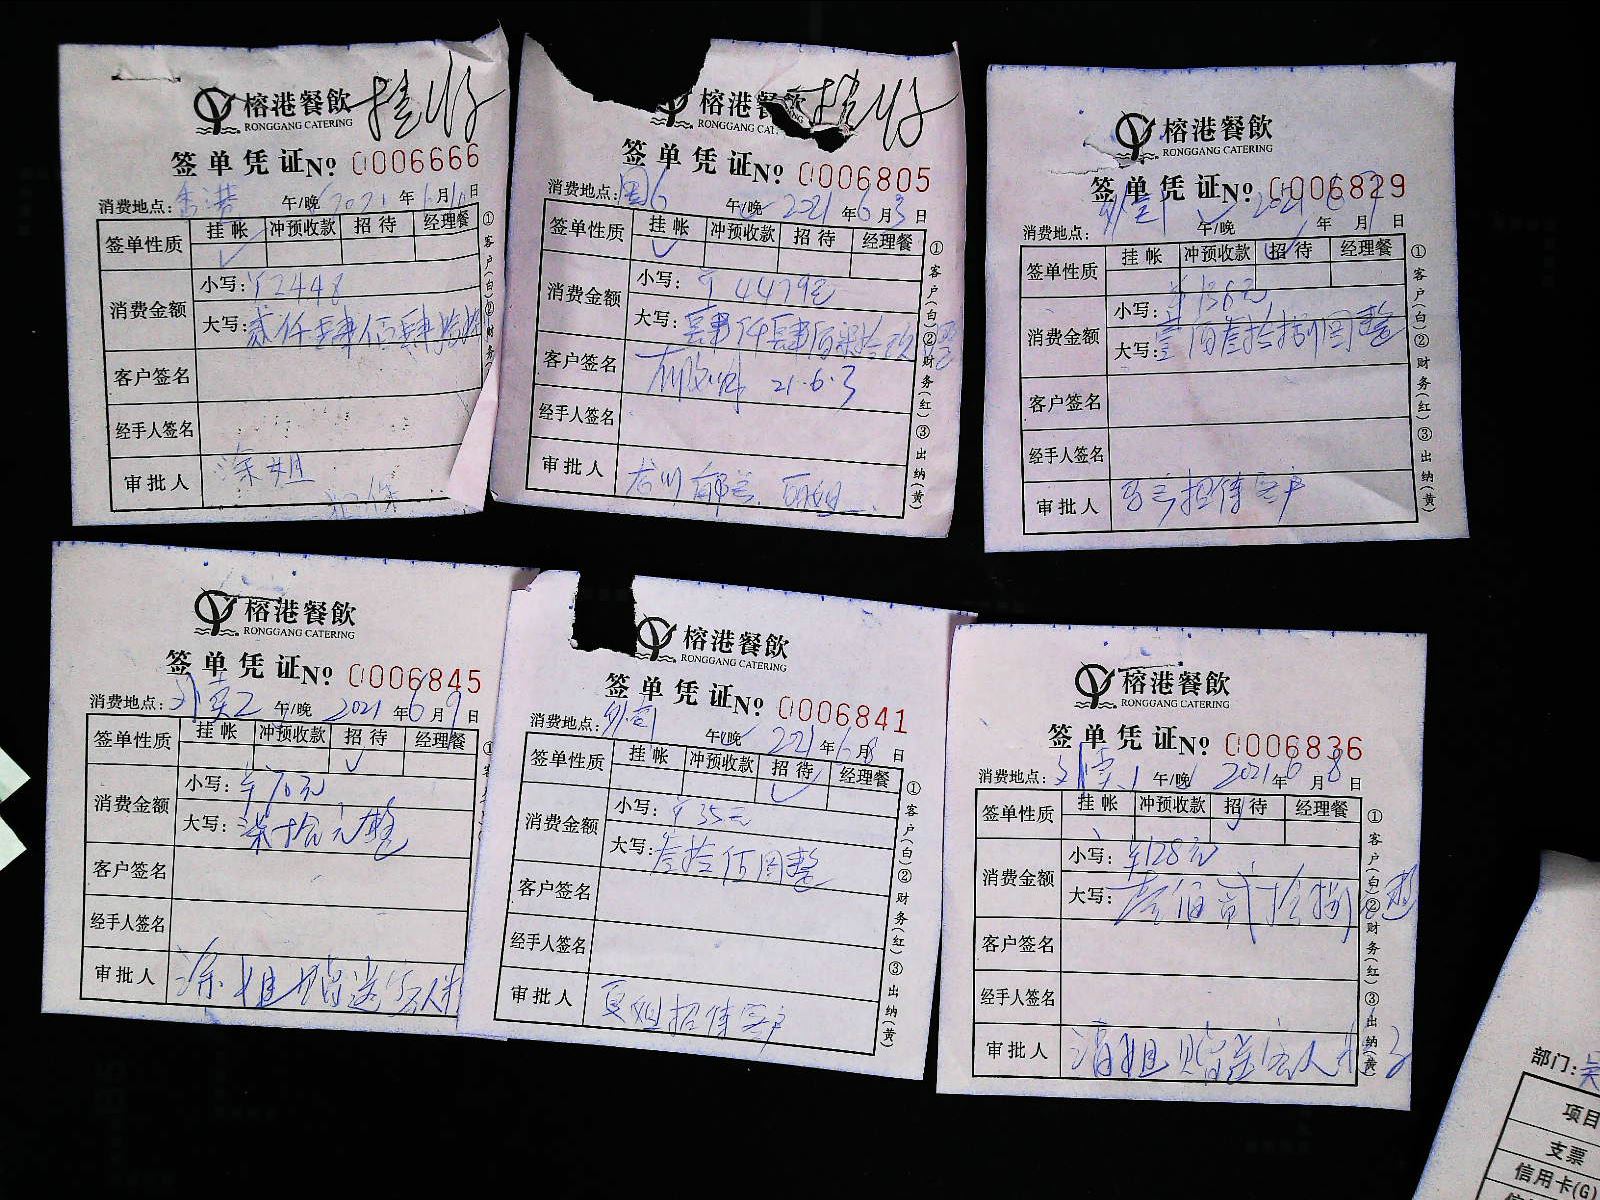 榕港餐飲 挂账
RONGGANG CATERING
签单凭证No 0006666
消费地点: 香港 午/晚 2021年6月6日
签单性质 挂帐 冲预收款 招待 经理餐
✓
消费金额 小写: ¥2448
大写: 贰仟肆佰肆拾捌
客户签名
经手人签名
审批人 涂姐
①客户(白)②财务
榕港餐飲 挂账
RONGGANG CAT
签单凭证No 0006805
消费地点: 国6 午/晚 2021年6月3日
签单性质 挂帐 冲预收款 招待 经理餐
✓
消费金额 小写: ¥4479元
大写: 肆仟肆佰柒拾玖
客户签名 21.6.3
经手人签名
审批人
①客户(白)②财务(红)③出纳(黄)
榕港餐飲
RONGGANG CATERING
签单凭证No 0006829
消费地点: 午/晚 2021年6月7日
签单性质 挂帐 冲预收款 招待 经理餐
消费金额 小写: ¥136元
大写: 壹佰叁拾捌圆整
客户签名
经手人签名
审批人 招待客户
①客户(白)②财务(红)③出纳(黄)
榕港餐飲
RONGGANG CATERING
签单凭证No 0006845
消费地点: 外卖2 午/晚 2021年6月9日
签单性质 挂帐 冲预收款 招待 经理餐
✓
消费金额 小写: ¥70元
大写: 柒拾元整
客户签名
经手人签名
审批人 涂姐赠送客人
榕港餐飲
RONGGANG CATERING
签单凭证No 0006841
消费地点: 午/晚 2021年6月8日
签单性质 挂帐 冲预收款 招待 经理餐
✓
消费金额 小写: ¥35元
大写: 叁拾伍圆整
客户签名
经手人签名
审批人 夏姐招待客户
①客户(白)②财务(红)③出纳(黄)
榕港餐飲
RONGGANG CATERING
签单凭证No 0006836
消费地点: 外卖1 午/晚 2021年6月8日
签单性质 挂帐 冲预收款 招待 经理餐
消费金额 小写: ¥128元
大写: 壹佰贰拾捌 整
客户签名
经手人签名
审批人 涂姐赠送客人
①客户(白)②财务(红)③出纳(黄)
部门:
项目
支票
信用卡(G)